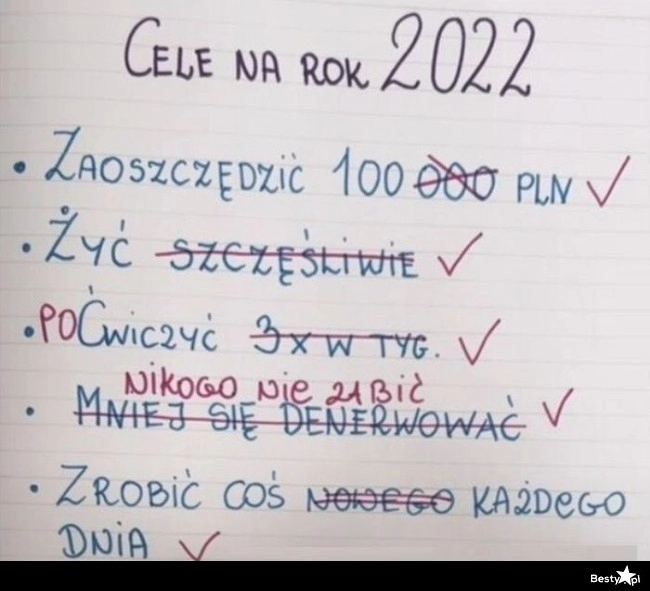 CELE NA ROK 2022
• ZAOSZCZĘDZIĆ 100 000 PLN ✓
• ŻYĆ SZCZĘŚLIWIE ✓
• POĆWICZYĆ 3X W TYG. ✓
NIKOGO NIE ZABIĆ
• MNIEJ SIĘ DENERWOWAĆ ✓
• ZROBIĆ COŚ NOWEGO KAŻDEGO
DNIA ✓
Besty.pl